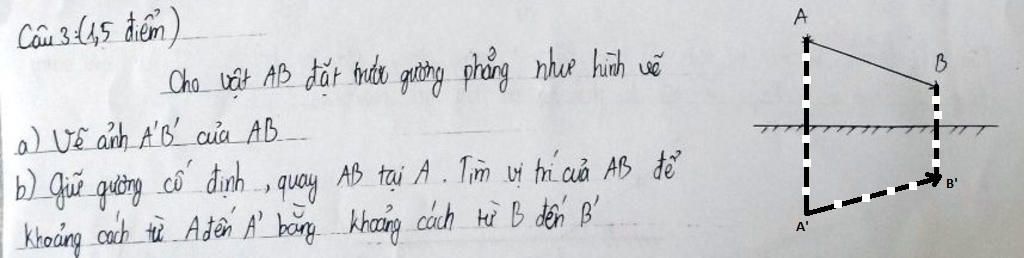 Câu 3:(1,5 điểm)
Cho vật AB đặt trước gương phẳng như hình vẽ
a) Vẽ ảnh A'B' của AB
b) Giữ gương cố định, quay AB tại A. Tìm vị trí của AB để
khoảng cách từ A đến A' bằng khoảng cách từ B đến B'
A
B
B'
A'